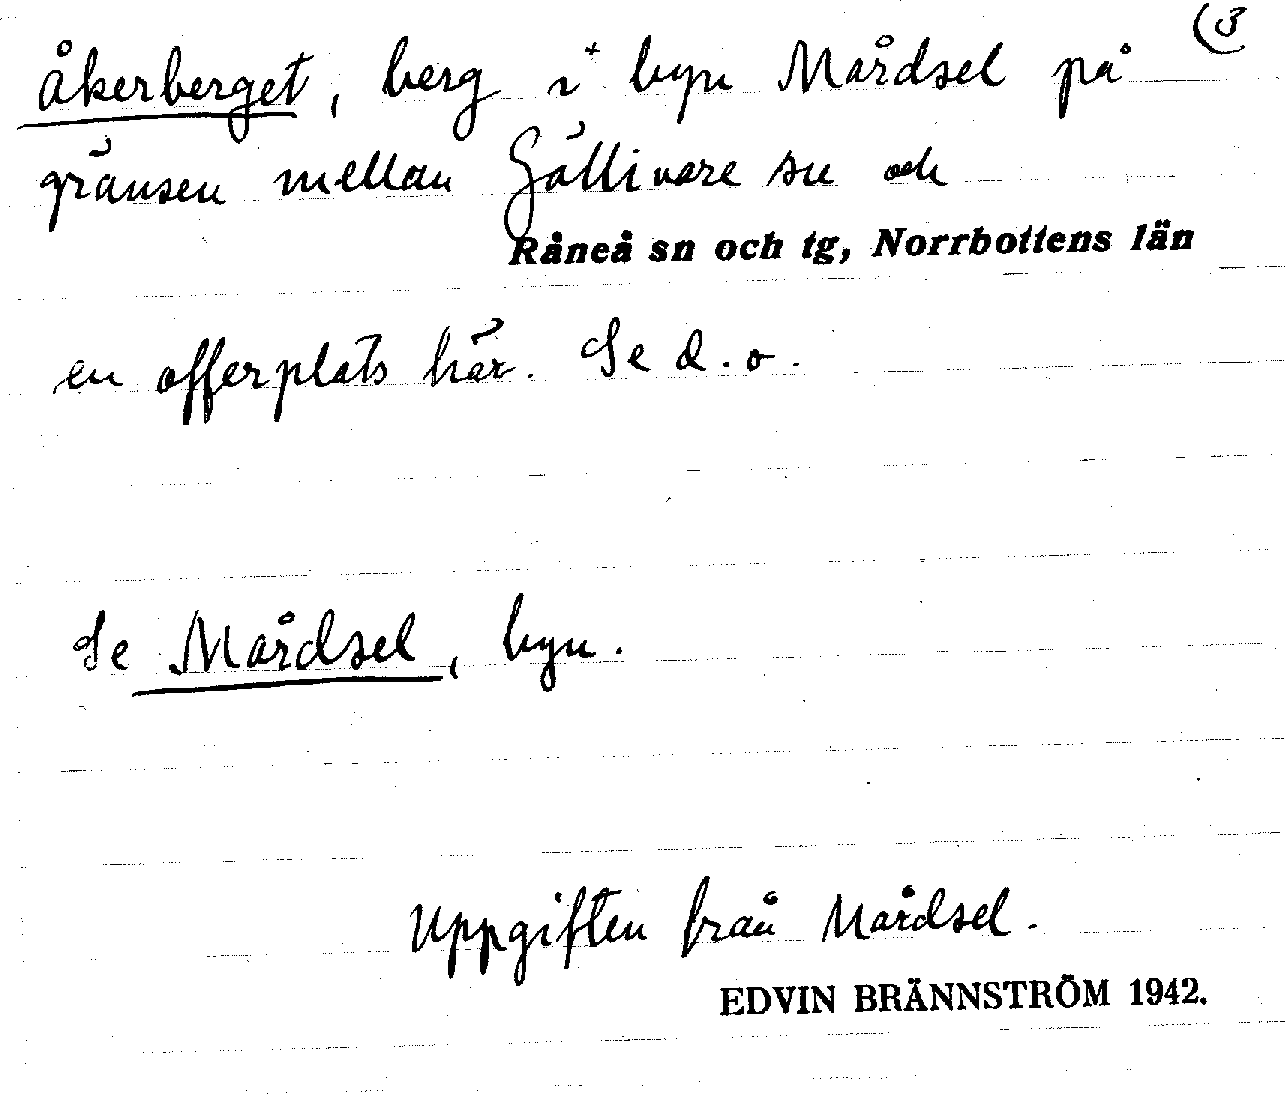 (3
åkerberget, berg i byn Mårdsel på
gränsen mellan Gällivare sn och
Råneå sn och tg, Norrbottens län
en offerplats här. Se d.o.
Se Mårdsel, byn.
Uppgiften från Mårdsel.
EDVIN BRÄNNSTRÖM 1942.